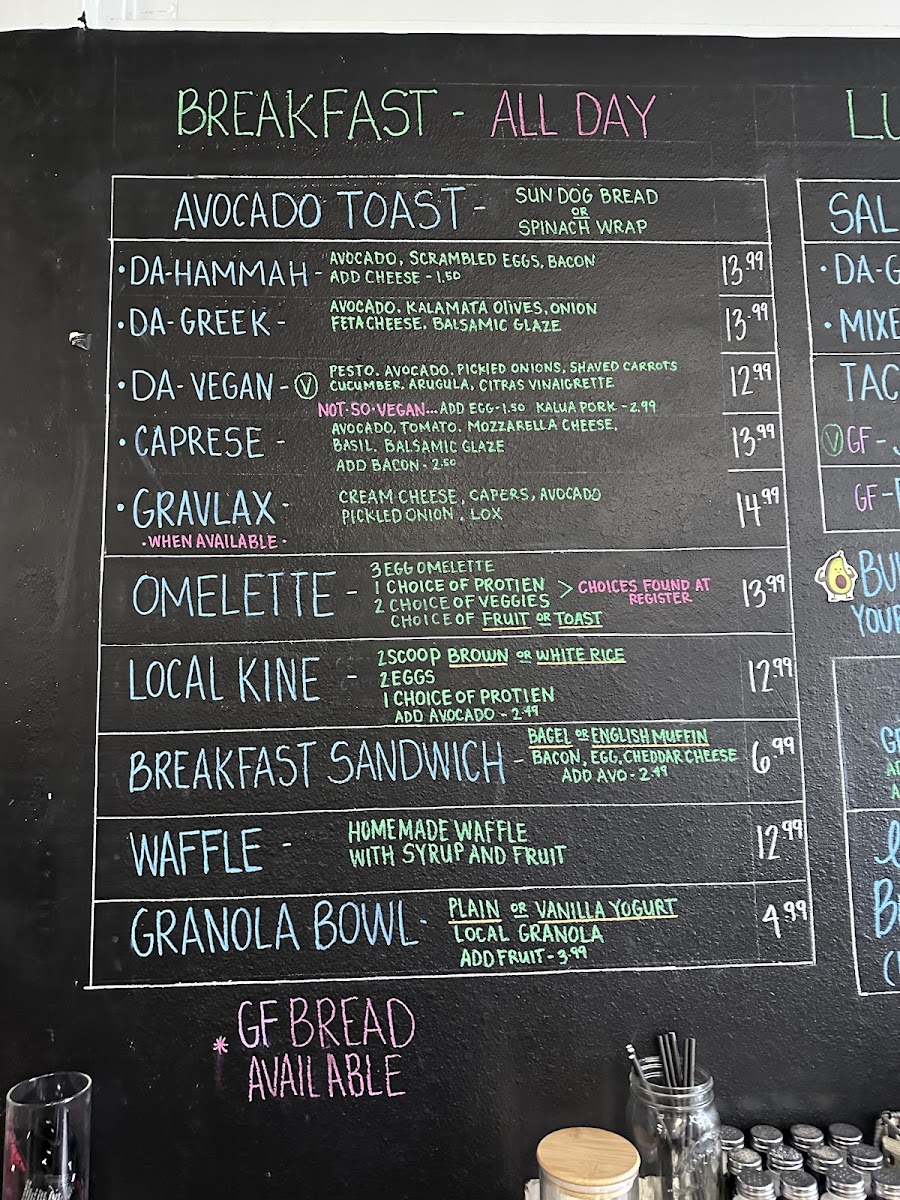 BREAKFAST - ALL DAY
AVOCADO TOAST - SUN DOG BREAD
OR
SPINACH WRAP
• DA-HAMMAH - AVOCADO, SCRAMBLED EGGS, BACON 13.99
ADD CHEESE - 1.50
• DA-GREEK - AVOCADO. KALAMATA OLIVES, ONION 13.99
FETA CHEESE. BALSAMIC GLAZE
• DA-VEGAN - V PESTO. AVOCADO, PICKIED ONIONS, SHAVED CARROTS 12.99
CUCUMBER. ARUGULA, CITRAS VINAIGRETTE
NOT·SO·VEGAN... ADD EGG-1.50 KALUA PORK - 2.99
• CAPRESE - AVOCADO, TOMATO. MOZZARELLA CHEESE, 13.99
BASIL. BALSAMIC GLAZE
ADD BACON - 2.50
• GRAVLAX - CREAM CHEESE, CAPERS, AVOCADO 14.99
PICKLED ONION, LOX
·WHEN AVAILABLE·
OMELETTE - 3 EGG OMELETTE 13.99
1 CHOICE OF PROTIEN > CHOICES FOUND AT
2 CHOICE OF VEGGIES REGISTER
CHOICE OF FRUIT OR TOAST
LOCAL KINE - 2 SCOOP BROWN OR WHITE RICE 12.99
2 EGGS
1 CHOICE OF PROTIEN
ADD AVOCADO - 2.49
BREAKFAST SANDWICH - BAGEL OR ENGLISH MUFFIN 6.99
BACON, EGG, CHEDDAR CHEESE
ADD AVO - 2.49
WAFFLE - HOMEMADE WAFFLE 12.99
WITH SYRUP AND FRUIT
GRANOLA BOWL - PLAIN OR VANILLA YOGURT 4.99
LOCAL GRANOLA
ADD FRUIT - 3.99
* GF BREAD
AVAILABLE
LU
SAL
• DA-G
• MIXE
TAC
V GF -
GF -
BU
YOUR